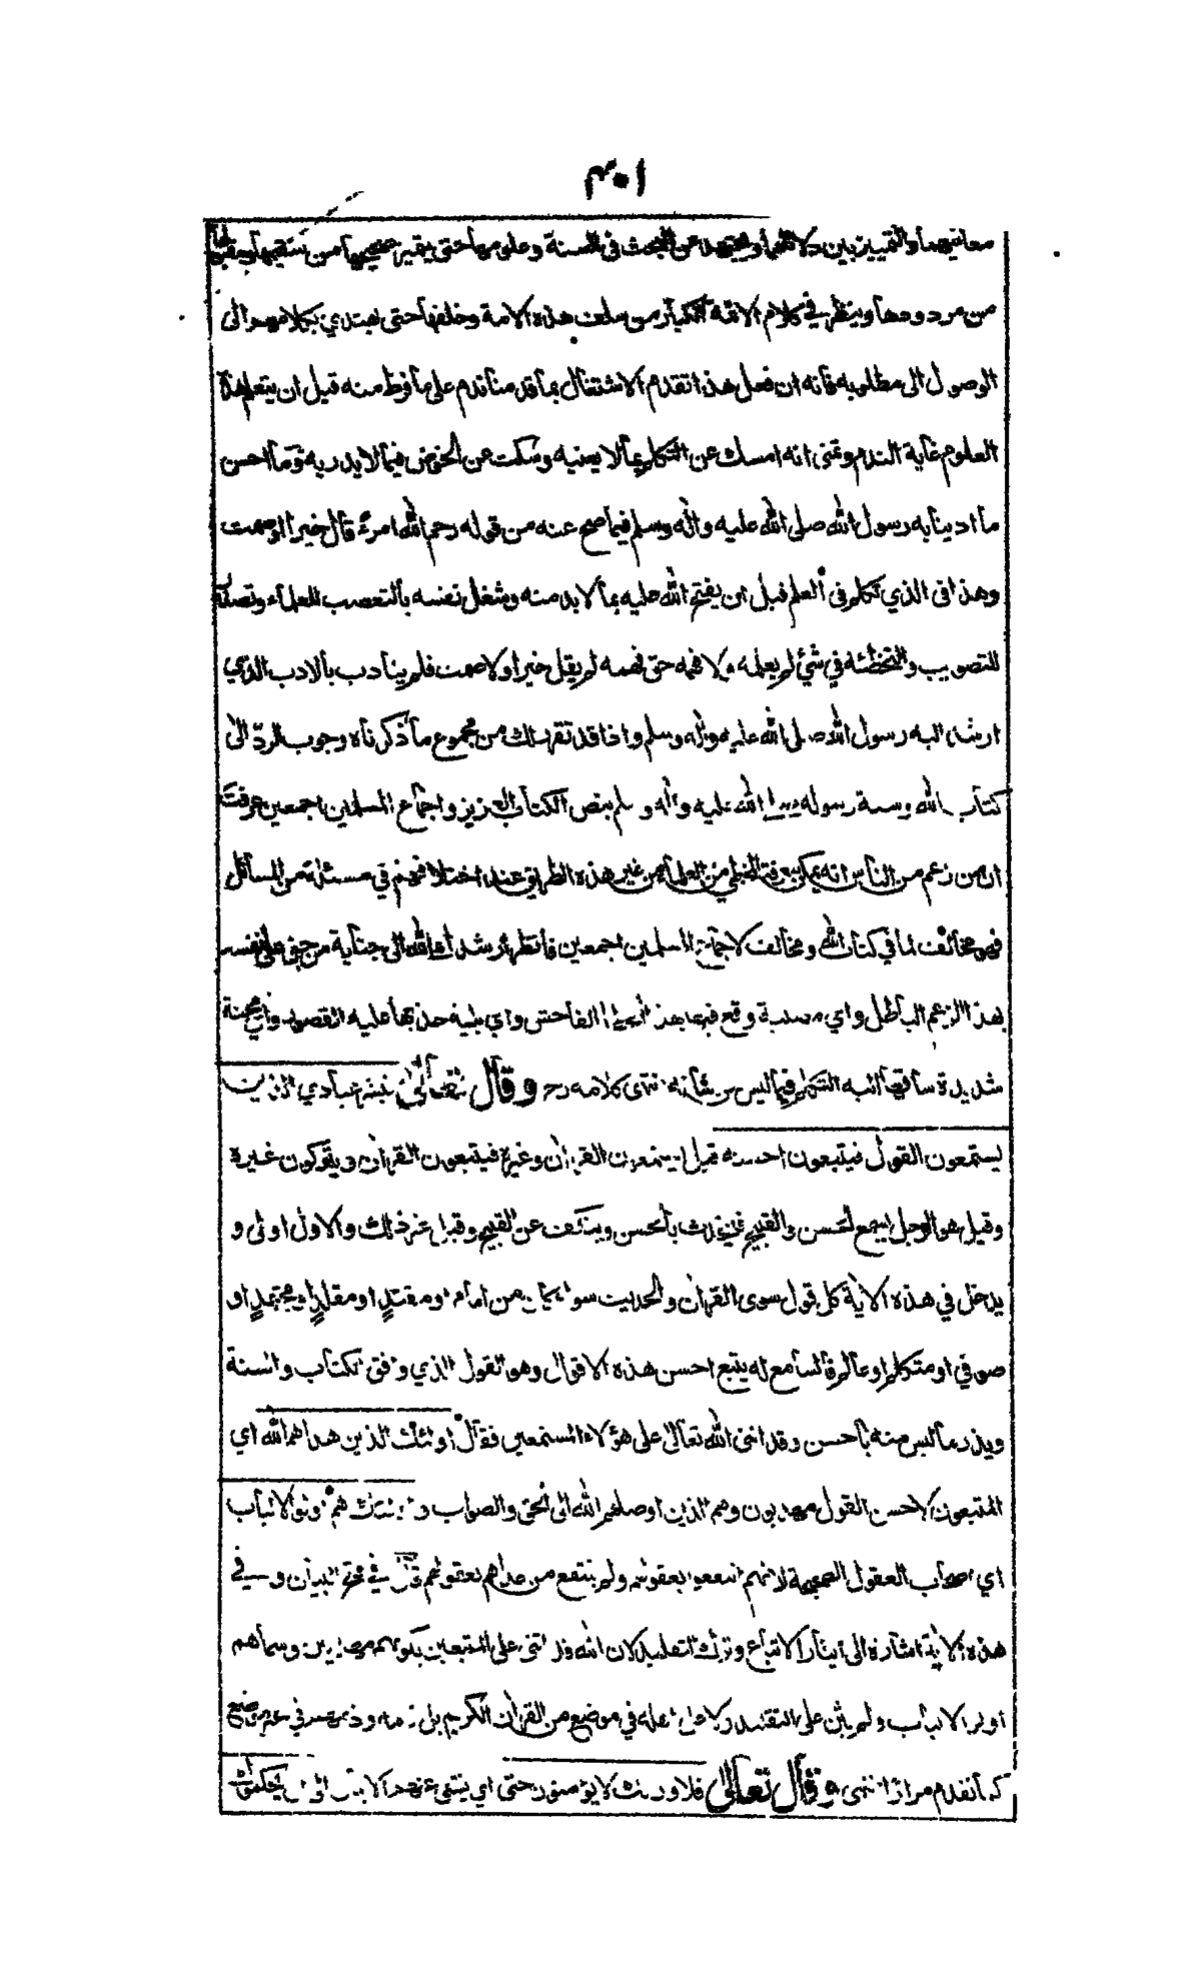 ١٠٣
معانيهما والتمييز بين دلائلهما ويجتهد عن البحث في السنة وعلومها حتى يتميز صحيحها من سقيمها ومقبولها
من مردودها وينظر في كلام الائمة الكبار من سلف هذه الامة وخلفها حتى يهتدي بكلامهم الى
الوصول الى مطلوبه فانه ان فعل هذا تقدم الاشتغال بما قدمنا ندم على ما فرط منه قبل ان يتعلم هذه
العلوم غاية الندم وتمنى انه امسك عن التكلم بما لا يعنيه وسكت عن الخوض فيما لا يدريه وما احسن
ما ادبنا به رسول الله صلى الله عليه واله وسلم فيما صح عنه من قوله رحم الله امرءً قال خيرا او صمت
وهذا في الذي تكلم في العلم قبل ان يفتح الله عليه بما لا بد منه وشغل نفسه بالتعصب للعلماء وتصدى
للتصويب والتخطئه في شيء لم يعلمه ولا فهمه حق فهمه لم يقل خيرا ولا صمت فلم يتادب بالادب الذي
ارشد اليه رسول الله صلى الله عليه واله وسلم واذا قد تقرر لك من مجموع ما ذكرناه وجوب الردّ الى
كتاب الله وسنة رسوله صلى الله عليه واله وسلم بنص الكتاب العزيز واجماع المسلمين اجمعين عرفت
ان من زعم من الناس انه يمكن معرفة المخطي من العلماء من غير هذه الطريق عند اختلافهم في مسئلة من المسائل
فهو مخالف لما في كتاب الله ومخالف لاجماع المسلمين اجمعين فانظر ارشدك الله الى جناية من جنى على نفسه
بهذا الزعم الباطل واي مصيبة وقع فيها بهذا الخطا الفاحش واي بلية جذبها عليه القصور واي محنة
شديدة ساقها اليه التكلم فيما ليس من شانه انتهى كلامه رح وقال تعالى فبشر عبادي الذين
يستمعون القول فيتبعون احسنه قيل يستمعون القران وغيره فيتبعون القران ويتركون غيره
وقيل هو الرجل يسمع الحسن والقبيح فيتحدث بالحسن ويتكف عن القبيح وقيل غير ذلك والاول اولى و
يدخل في هذه الاية كل قول سوى القران والحديث سواء كان من امام او مقتدٍ او مقلدٍ او مجتهدٍ او
صوفي او متكلم او عالم فالسامع له يتبع احسن هذه الاقوال وهو القول الذي وافق الكتاب والسنة
ويذر ما ليس منه باحسن وقد اثنى الله تعالى على هؤلاء المستمعين فقال اولئك الذين هداهم الله اي
المتبعون لاحسن القول مهديون وهم الذين اوصلهم الله الى الحق والصواب واولئك هم اولو الالباب
اي اصحاب العقول الصحيحة لانهم انتفعوا بعقولهم ولم ينتفع من عداهم بعقولهم قال في فتح البيان وفي
هذه الاية اشارة الى ايثار الاتباع وترك التقليد لان الله قد اثنى على المتبعين بكونهم مهديين وسماهم
اولو الالباب ولم يثن على التقليد ولا على اهله في موضع من القران الكريم بل ذمه وذمهم في غير موضع
كما تقدم مرارا انتهى وقال تعالى فلا وربك لا يؤمنون حتى اي ينتفى عنهم الايمان الى ان يحكموك